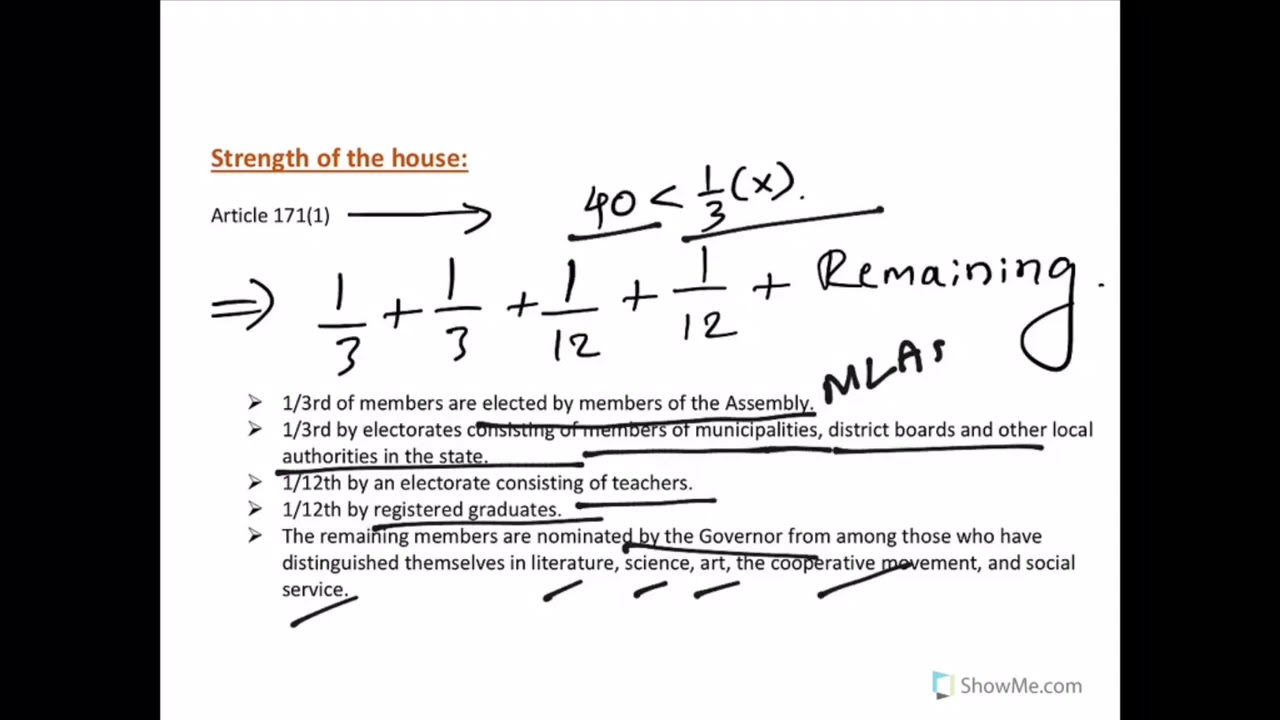 Strength of the house:
40 < 1/3 (x).
Article 171(1) →
⇒ 1/3 + 1/3 + 1/12 + 1/12 + Remaining.
MLAs
➢ 1/3rd of members are elected by members of the Assembly.
➢ 1/3rd by electorates consisting of members of municipalities, district boards and other local
authorities in the state.
➢ 1/12th by an electorate consisting of teachers.
➢ 1/12th by registered graduates.
➢ The remaining members are nominated by the Governor from among those who have
distinguished themselves in literature, science, art, the cooperative movement, and social
service.
ShowMe.com